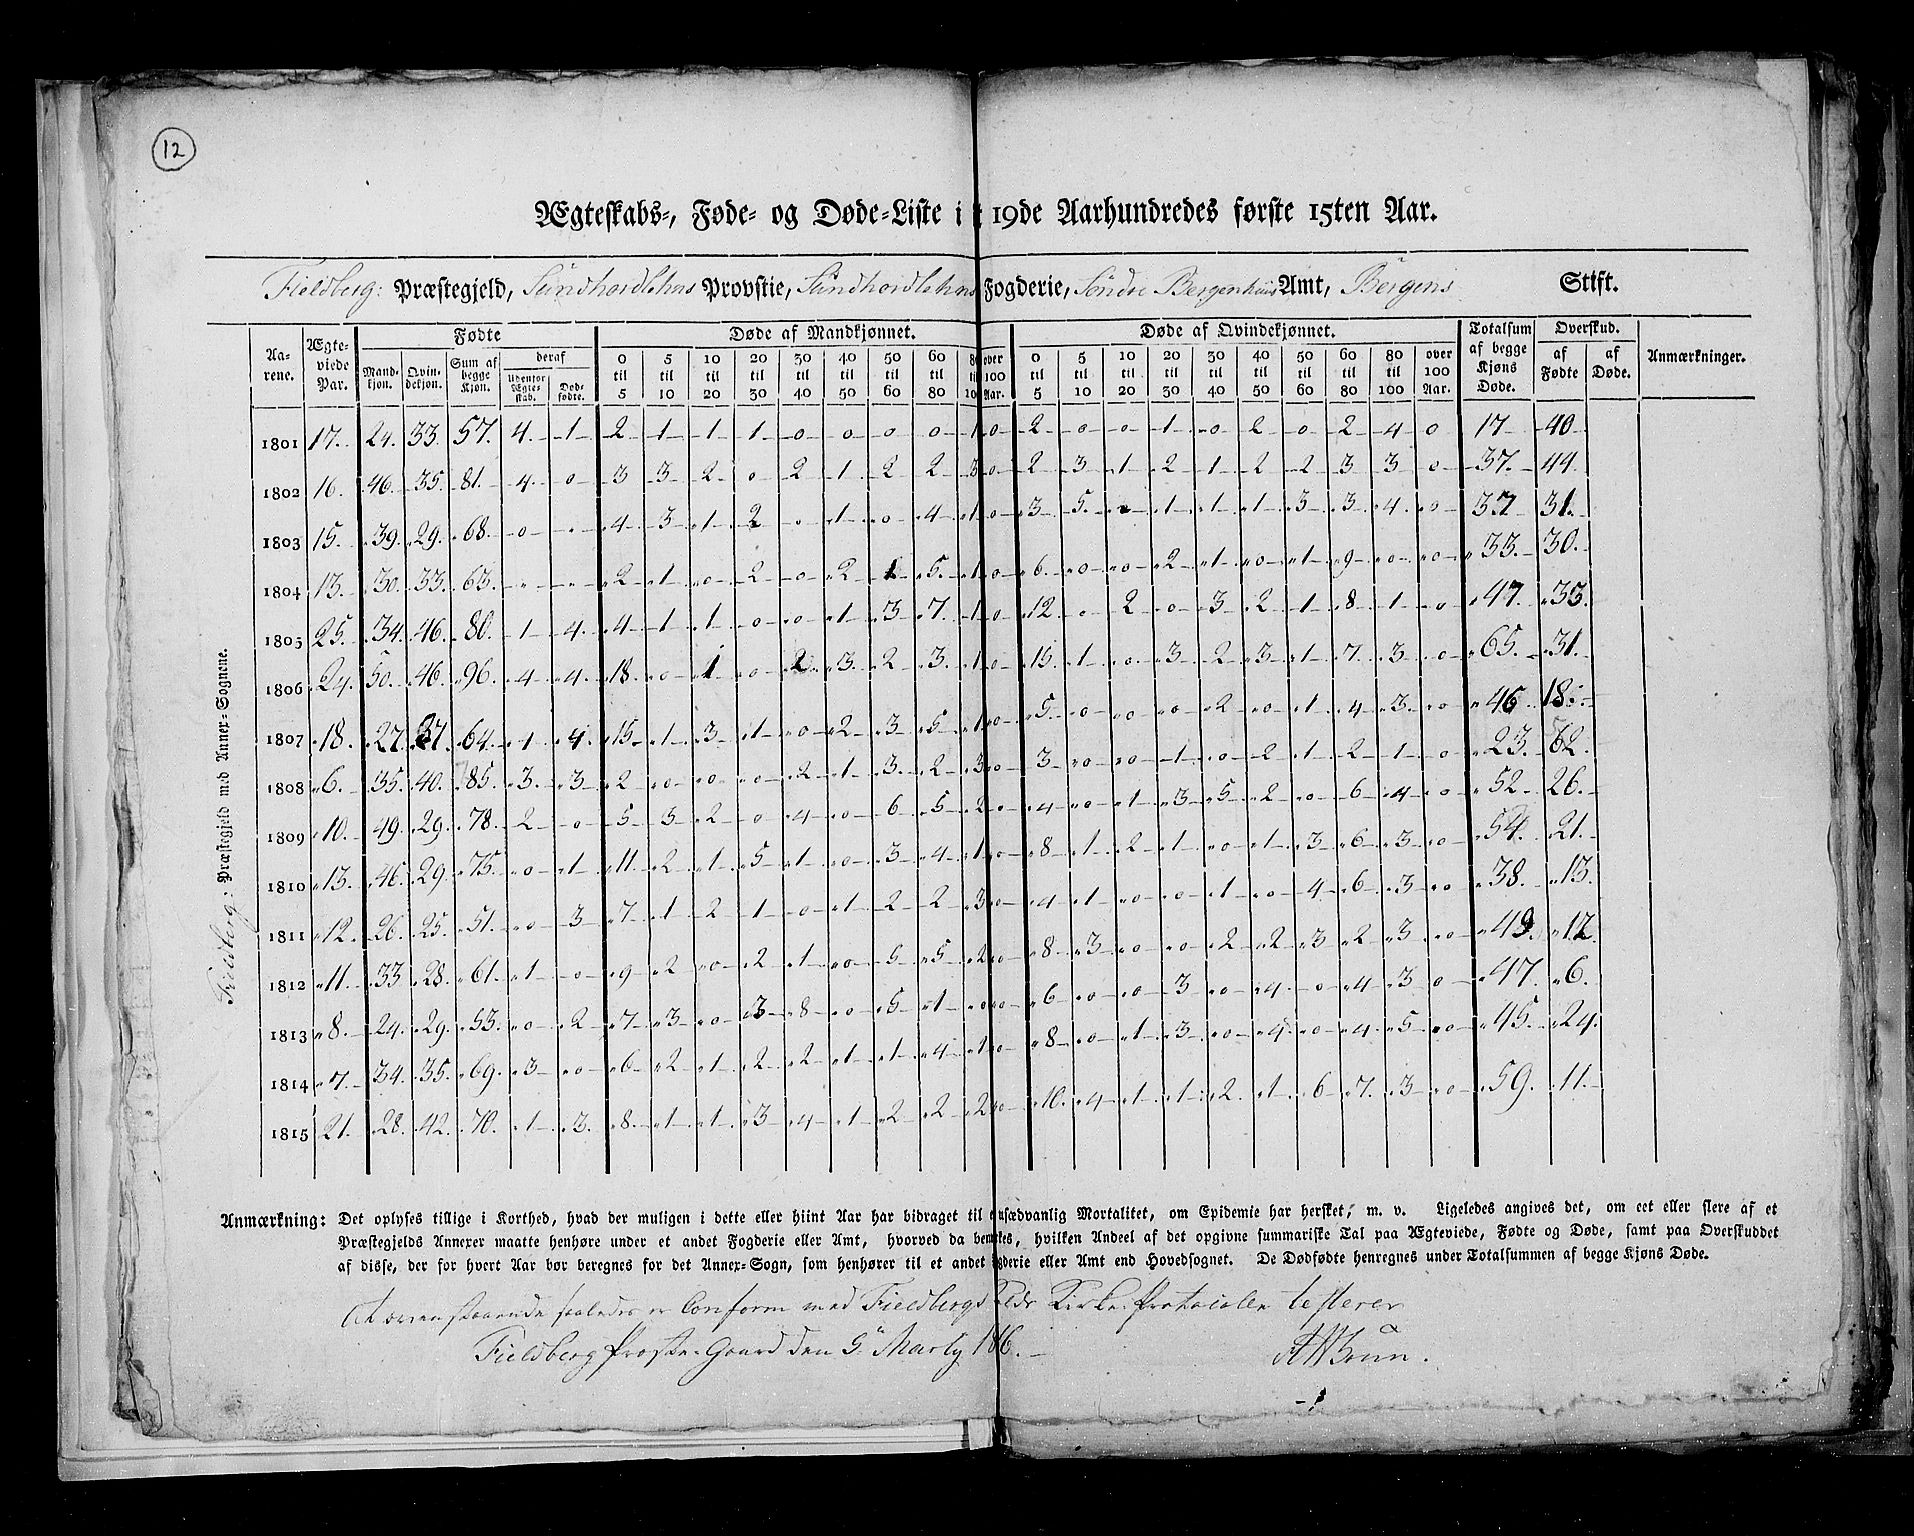 12
Ægteskabs-, Føde- og Døde-Liste i 19de Aarhundredes første 15ten Aar.
Fieldberg: Præstegjeld, Sündhordlehns Provstie, Sündhordlehns Fogderie, Søndre Bergenhuus Amt, Bergens Stift.
Aarene. Ægteviede Par. Fødte Døde af Mandkjønnet. Døde af Qvindekjønnet. Totalsum af begge Kjøns Døde. Overskud. Anmærkninger.
Mandkjøn. Qvindekjøn. Sum af begge Kjøn. deraf Udenfor Ægteskab. Dødfødte. 0 til 5 5 til 10 10 til 20 20 til 30 30 til 40 40 til 50 50 til 60 60 til 80 80 til 100 over 100 Aar. 0 til 5 5 til 10 10 til 20 20 til 30 30 til 40 40 til 50 50 til 60 60 til 80 80 til 100 over 100 Aar. af Fødte af Døde.
1801 17. 24. 33. 57. 4. 1 2 1 1 1 0 0 0 0 1 0 2 0 0 1 0 2 0 2 4 0 17 40
1802 16. 46. 35. 81. 4. 0 3 3 2 0 2 1 2 2 3 0 2 3 1 2 1 2 2 3 3 0 37. 44.
1803 15. 39. 29. 68. 0 4 3 1 2 0 1 0 4 1 0 3 5 1 1 1 3 3 4 0 37 31.
1804 13. 30. 33. 63. 2 1 0 2 0 2 1 5. 1 0 6. 0 0 2 1 0 1 9 0 0 33. 30.
1805 25. 34. 46. 80. 1 4. 4 1 1 0 0 1 3 7. 1 0 12. 0 2 0 3 2 1 8 1 0 47. 33.
1806 24. 50. 46. 96. 4 4. 18. 0 1 0 2 3 2 3. 1 0 15. 1 0 3 2 3 1 7. 3 0 65. 31.
1807 18. 27. 37. 64. 1 4. 15 1 3 1 0 2 3 5 1 0 5 0 0 0 2 0 1 4 3 0 46 18.
1808 6. 35. 40. 85. 3. 3 2 0 0 0 2 1 3. 2 3 0 3 0 0 1 0 2 1 2 1 0 23. 62.
1809 10. 49. 29. 78. 2 0 5 3 2 0 4 0 6 5 2 0 4 0 1 3 5 2 0 6 4 0 52 26.
1810 13. 46. 29. 75. 0 1 11. 2 1 5 1 0 3 4 1 0 8 1 2 1 0 1 3 6 3 0 54. 21.
1811 12. 26. 25. 51. 0 3 7 1 2 1 0 1 2 2 3 0 4 1 0 0 1 0 4 6 3 0 38. 13.
1812 11. 33 28. 61. 1 0 9 2 0 2 1 0 5 5 2 0 8 3 0 0 2 2 3 2 3 0 49. 12.
1813 8. 24. 29. 53. 0 2 7 3 0 3 8 0 5 1 0 0 6 0 0 3 0 4. 0 4 3 0 47. 6.
1814 7. 34. 35. 69. 3 0 6 2 1 2 2 1 1 4 1 0 8 0 1 3 0 4. 0 4 5 0 45. 24.
1815 21. 28. 42. 70. 1 3. 8. 1 1 3 4 1 2 2 2 0 10. 4 1 1 2. 1 6 7. 3 0 59. 11.
Fieldberg: Præstegjeld med Annex-Sognene.
Anmærkning: Det oplyses tillige i Korthed, hvad der muligen i dette eller hiint Aar har bidraget til usædvanlig Mortalitet, om Epidemie har hersket, m. v. Ligeledes angives det, om eet eller flere af et
Præstegjelds Annexer maatte henhøre under et andet Fogderie eller Amt, hvorved da bemærkes, hvilken Andeel af det opgivne summariske Tal paa Ægteviede, Fødte og Døde, samt paa Overskuddet
af disse, der for hvert Aar bør beregnes for det Annex-Sogn, som henhører til et andet Fogderie eller Amt end Hovedsognet. De Dødfødte henregnes under Totalsummen af begge Kjøns Døde.
At ovenstaaende saaledes er Conform med Fieldbergs Kirke Protocoller testerer
Fieldberg Præste-Gaard den 5te Marty 1816.